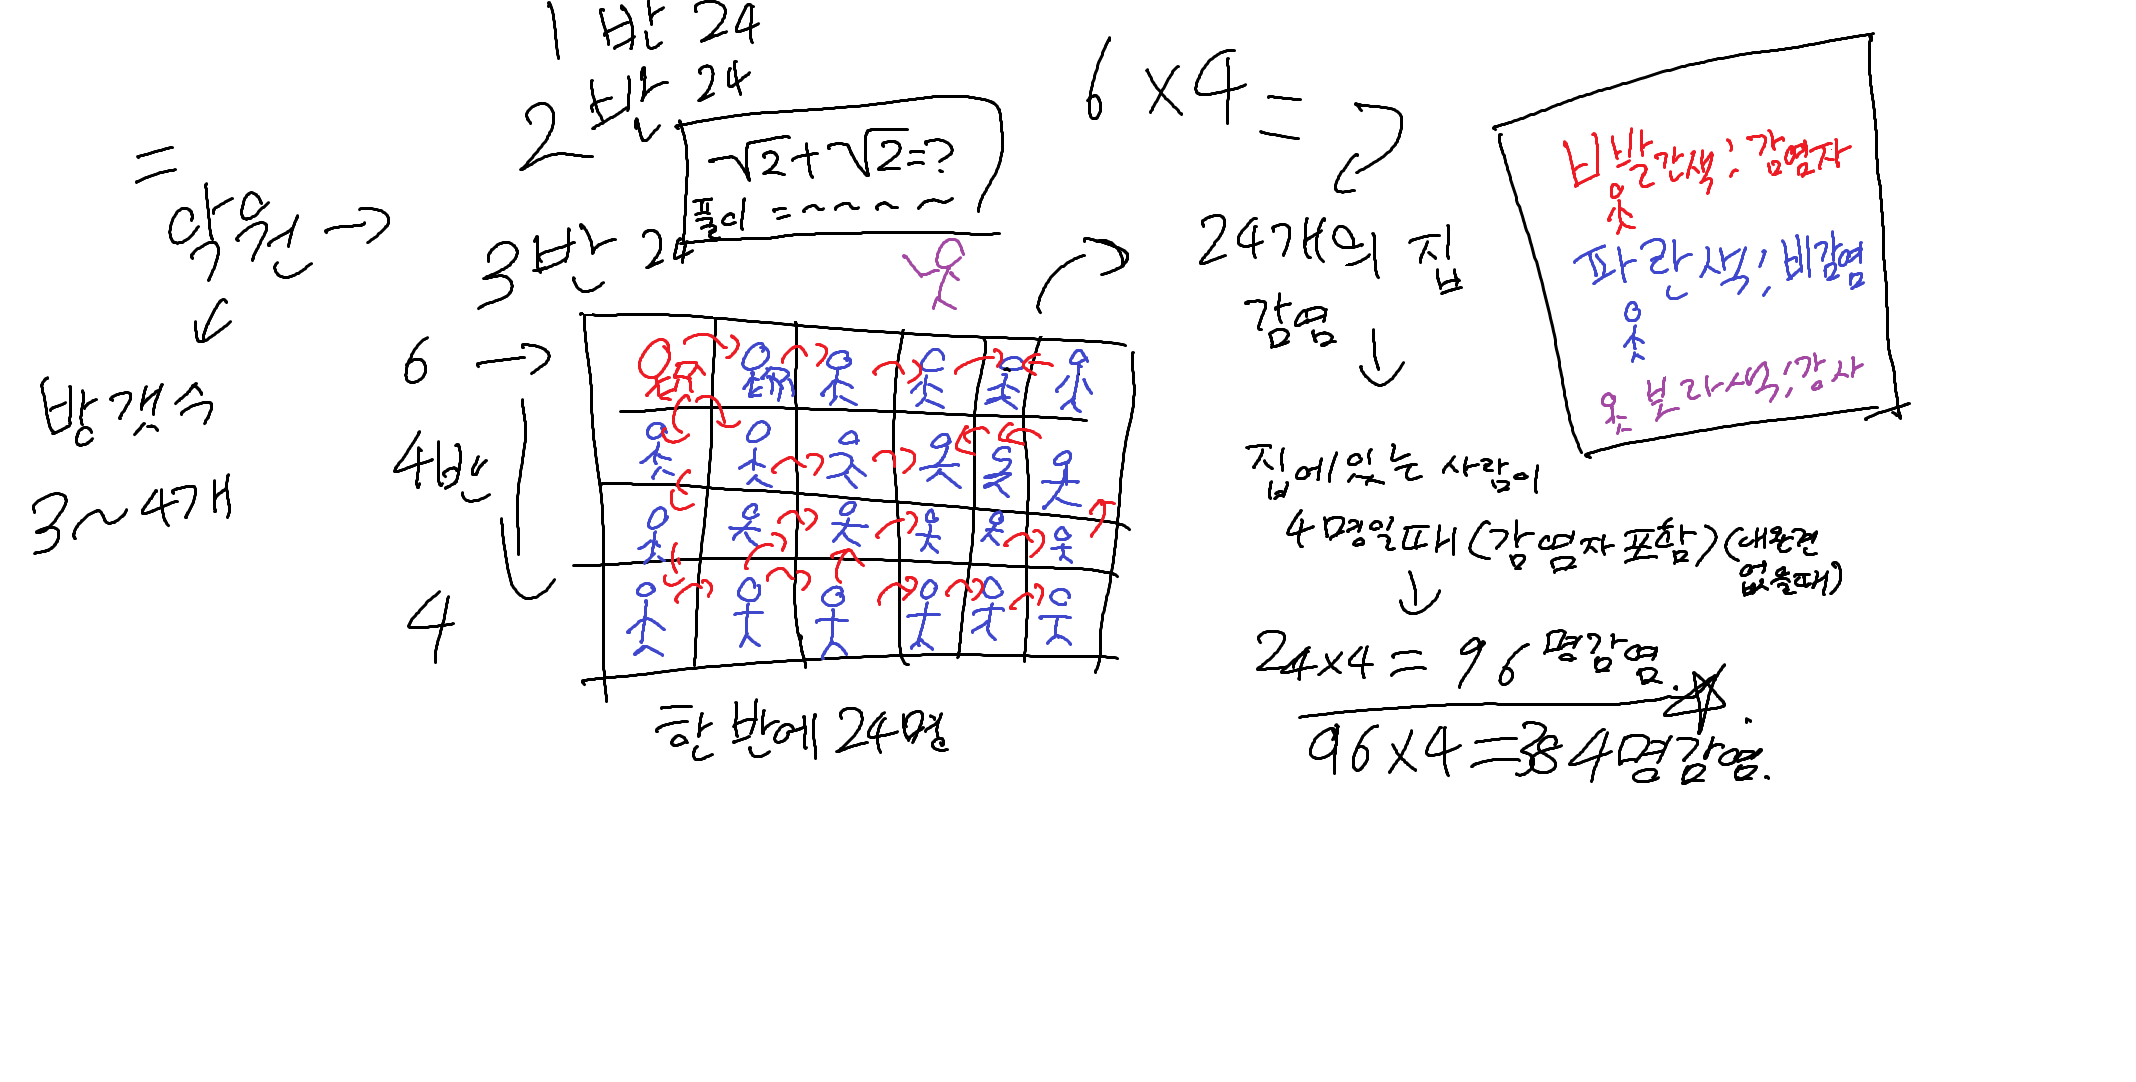 1 반 24
2 반 24
√2+√2=?
풀이 =~~~~
3반 24
=
악원→
방갯수
3~4개
6 →
4반
4
한 반에 24명
6×4=
24개의 집
감염
집에있는 사람이
4명일때(감염자포함)(애완견
없을때)
24×4=96명감염.
96×4=384명감염.
빨간색;감염자
파란색;비감염
보라색;강사